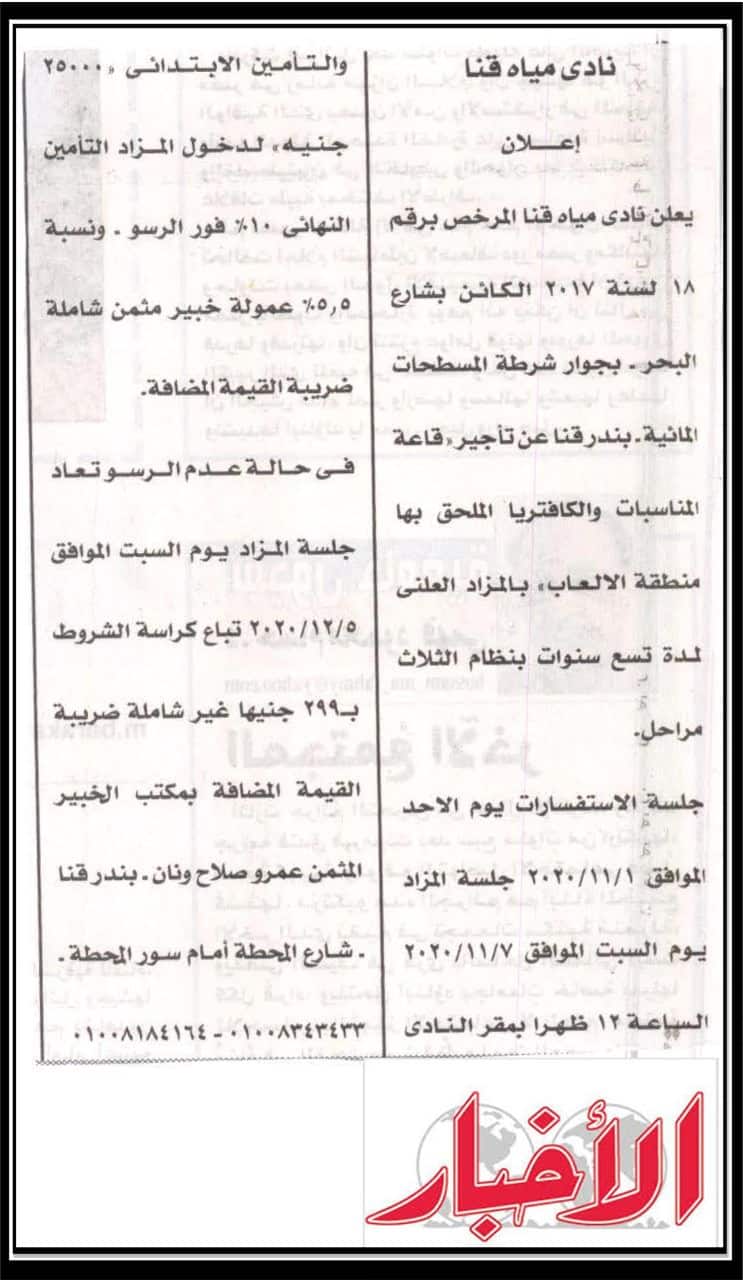 نادى مياه قنا
إعلان
يعلن نادى مياه قنا المرخص برقم
١٨ لسنة ٢٠١٧ الكائن بشارع
البحر. بجوار شرطة المسطحات
المائية. بندر قنا عن تأجير «قاعة
المناسبات والكافتريا الملحق بها
منطقة الالعاب» بالمزاد العلنى
لمدة تسع سنوات بنظام الثلاث
مراحل.
جلسة الاستفسارات يوم الاحد
الموافق ٢٠٢٠/١١/١ جلسة المزاد
يوم السبت الموافق ٢٠٢٠/١١/٧
الساعة ١٢ ظهرا بمقر النادى
والتأمين الابتدائى «٢٥٠٠٠
جنيه» لدخول المزاد التأمين
النهائى ١٠٪ فور الرسو . ونسبة
٥,٥٪ عمولة خبير مثمن شاملة
ضريبة القيمة المضافة.
فى حالة عدم الرسو تعاد
جلسة المزاد يوم السبت الموافق
٢٠٢٠/١٢/٥ تباع كراسة الشروط
بـ٢٩٩ جنيها غير شاملة ضريبة
القيمة المضافة بمكتب الخبير
المثمن عمرو صلاح ونان. بندر قنا
. شارع المحطة أمام سور المحطة .
٠١٠٠٨٣٤٣٤٣٣-٠١٠٠٨١٨٤١٦٤
الأخبار